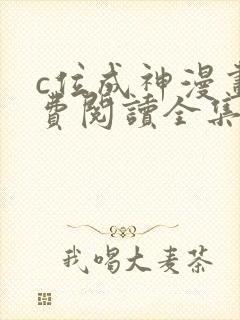 c位成神漫畫
費閱讀全集
我喝大麥茶